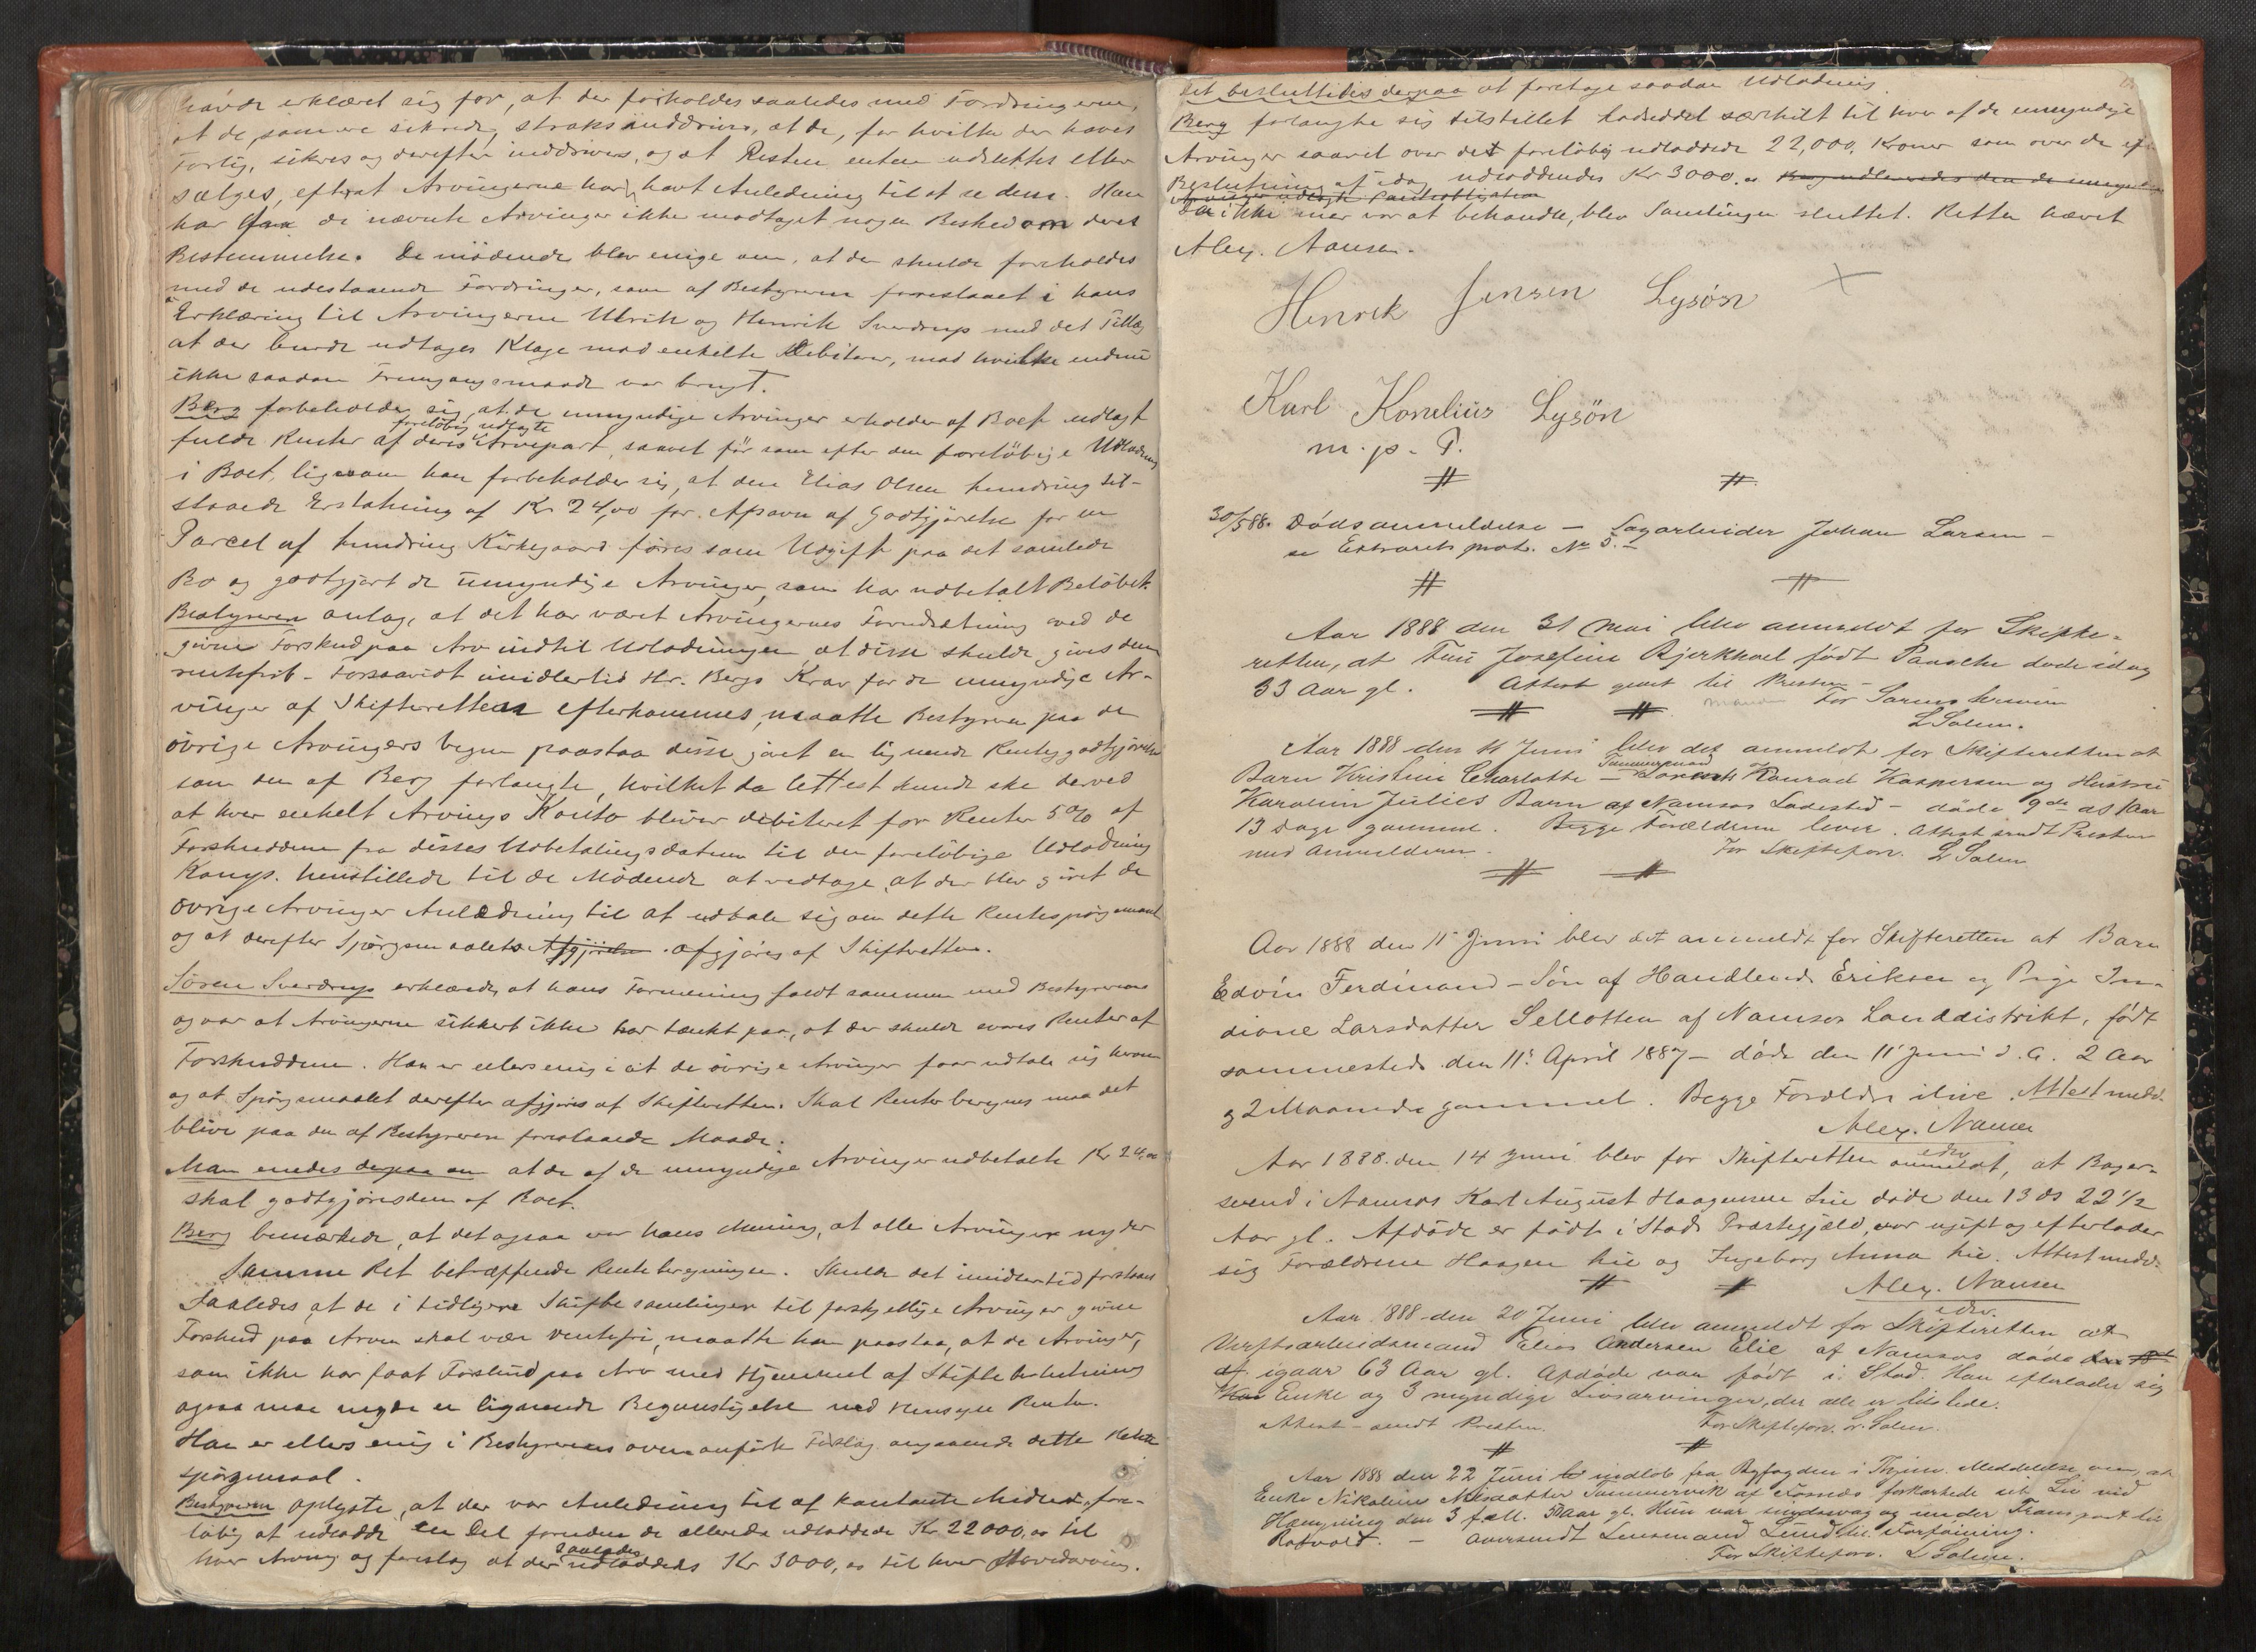 havde erklæret sig for, at der forholdes saaledes med Fordringerne,
at de, som ere sikrede, straks inddrives, at de, for hvilke der haves
Forlig, sikres og derefter inddrives, og at Resten enten udsættes eller
sælges, efterat Arvingerne har havt Anledning til at se dem. Han
har fra de nævnte Arvinger ikke modtaget nogen Besked om deres
Bestemmelse. De mødende blev enige om, at der skulde forholdes
med de udestaaende Fordringer, som af Bestyreren foreslaaet i hans
Erklæring til Arvingerne Ulrik og Henrik Sverdrup med det Tillæg
at der burde udtages Klage mod enkelte Debitorer, mod hvilke endnu
ikke saadan Fremgangsmaade var brugt.
Berg forbeholder sig, at de umyndige Arvinger erholder af Boet udlagt
fulde Renter af deres foreløbig udlagte Arvepart, saavel før som efter den foreløbige Udlodning
i Boet, ligesom han forbeholder sig, at den Elias Olsen Hundring til-
staaede Erstatning af Kr 24,00 for Afsavn af Godtgjørelse for en
Parcel af Hundring Kirkegaard føres som Udgift paa det samlede
Bo og godtgjørt de umyndige Arvinger, som har udbetalt Beløbet.
Bestyreren antog, at det har været Arvingernes Forudsætning ved de
givne Forskud paa Arv indtil Udlodningen at disse skulde gives dem
rentefrit. Forsaavidt imidlertid Hr. Bergs Krav for de umyndige Ar-
vinger af Skifteretten efterkommes, maatte Bestyreren paa de
øvrige Arvingers vegne paastaa disse givet en lignende Rentegodtgjørelse
som den af Berg forlangte, hvilket da lettest kunde ske derved
at hver enkelt Arvings Konto bliver debiteret for Renter 5% af
Forskuddene fra disses Udbetalingsdatum til den foreløbige Udlodning
Konst. henstillede til de Mødende at vedtage, at der blev givet de
øvrige Arvinger Anledning til at udtale sig om dette Rentespørgsmaal
og at derefter Spørgsmaalets Afgjørelse afgjøres af Skifteretten.
Søren Sverdrup erklærede, at hans Formening faldt sammen med Bestyrerens
og var at Arvingerne sikkert ikke har tænkt paa, at der skulde svares Renter af
Forskuddene. Han er ellers enig i at de øvrige Arvinger faar udtale sig herom
og at Spørgsmaalet derefter afgjøres af Skifteretten. Skal Renter beregnes maa det
blive paa den af Bestyreren foreslaaede Maade.
Man enedes derpaa om at de af de umyndige Arvinger udbetalte Kr 24,00
skal godtgjøres dem af Boet.
Berg bemærkede, at det ogsaa var hans Mening, at alle Arvinger nyder
samme Ret betræffende Renteberegningen. Skulde det imidlertid forstaaes
saaledes, at de i tidligere Skiftesamlinger til forskjellige Arvinger givne
Forskud paa Arven skal være rentefri, maatte han paastaa, at de Arvinger,
som ikke har faat Forskud paa Arv med Hjemmel af Skiftebeslutning
ogsaa maa nyde en lignende Begunstigelse med Hensyn Renter.
Han er ellers enig i Bestyrerens ovenanførte Forslag angaaende dette Rente
spørgsmaal.
Bestyreren oplyste, at der var Anledning til af kontante Midler, fore-
løbig at udlodde en Del foruden de allerede udloddede Kr. 22000,00 til
hver Arving og foreslog at der saaledes udloddedes Kr 3000,00 til hver Hovedarving.
Det besluttedes derpaa at foretage saadan Udlodning.
Berg forlangte sig tilstillet Lodseddel særskilt til hver af de umyndige
Arvinger saavel over det foreløbig udloddede 22,000 Kroner som over de ef
Beslutning af idag udloddedes Kr 3000.00 Berg udleveredes den de umyndige
Arvinger udlagte Panteobligation
Da ikke mer var at behandle, blev Samlingen sluttet. Retten hævet
Alex. Nansen.
Henrek Jensen Lysøn
Karl Kornelius Lysøn
m. p. P.
30/5 88. Dødsanmeldelse — Sagarbeider Johan Larsen —
se Extraretsprot. No 5. —
Aar 1888 den 31 Mai blev anmeldt for Skifte-
retten, at Frue Josefine Bjerkhoel født Paasche døde idag
33 Aar gl. Attest givet til Presten —
For Sorenskriveren
L Salem.
Aar 1888 den 11 Juni blev det anmeldt for Skifteretten at
Barn Kristine Charlotte — Tømmermand Konrad Kaspersen og Hustru
Karolin Julies Barn af Namsos Ladested — døde 9de ds 1 Aar
13 Dage gammel. Begge Forældrene lever. Attest sendt Presten
med Anmelderen. For Skifteforv. L Salem
Aar 1888 den 11 Juni blev det anmeldt for Skifteretten at Barn
Edvin Ferdinand — Søn af Handlende Eriksen og Pige In-
diane Larsdatter Sellotten af Namsos Landdistrikt, født
sammesteds den 11te April 1887 — døde den 11 Juni d. A. 2 Aar
og 2 Maaneder gammel. Begge Forældre ilive. Attest medd.
Alex. Nansen
Aar 1888 den 14 Juni blev for Skifteretten anmeldt, at Bager-
svend i Namsos Karl August Haagensen Lie døde den 13 ds 22 1/2
Aar gl. Afdøde er født i Stods Præstegjæld, var ugift og efterlader
sig Forældrene Haagen Lie og Ingeborg Anna Lie. Attest medd.
Alex. Nansen
Aar 1888 den 20 Juni blev anmeldt for Skifteretten at
Verftsarbeidsmand Elias Andersen Elie af Namsos døde
igaar 63 Aar gl. Afdøde var født i Stod. Han efterlader sig
Enke og 3 myndige Livsarvinger, der alle er tilstede.
Attest sendt Presten. For Skifteforv. L. Salem.
Aar 1888 den 22 Juni indløb fra Byfogden i Thjem. Meddelelse om, at
Enke Nikoline Nilsdatter Sommervik af Fosnæs forkortede sit Liv ved
Hængning den 3 f. M. Aar gl. Hun var sindssvag og under Transport til
Rotvold. — Oversendt Lensmand Lund til Forføining.
For Skifteforv. L Salem.